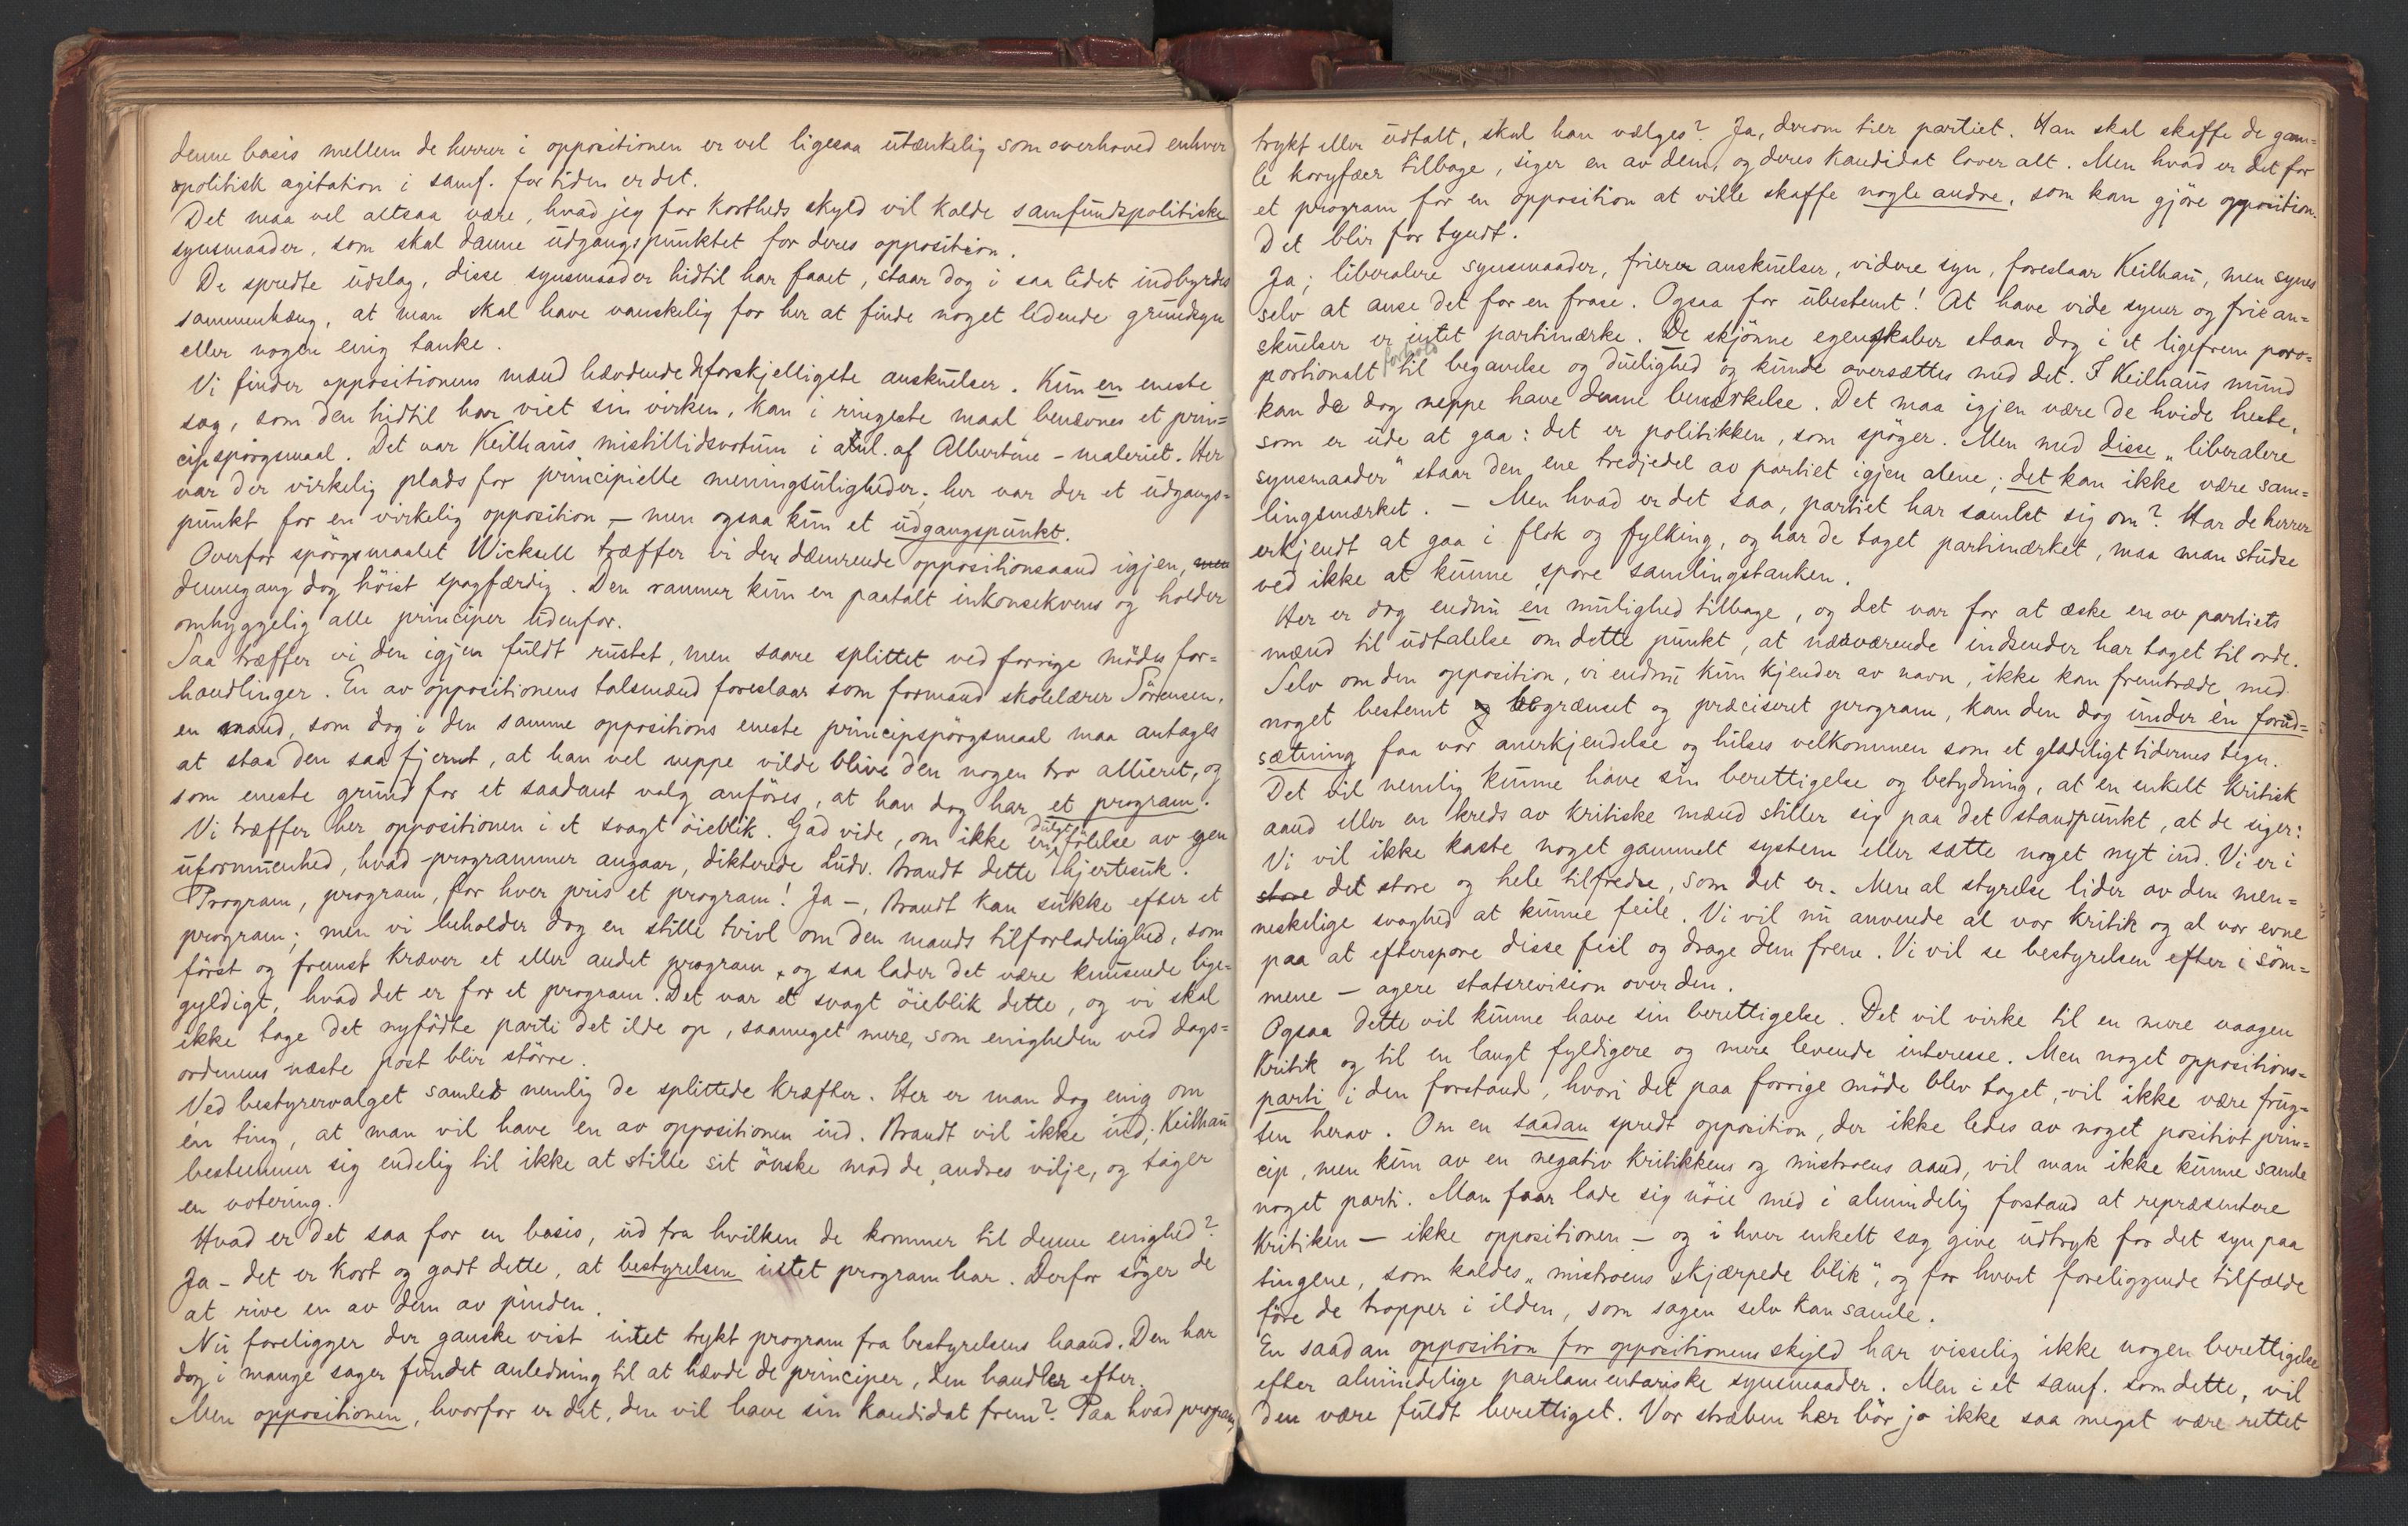 denne basis mellem de herrer i oppositionen er vel ligesaa utænkelig som overhoved enhver
politisk agitation i samf. for tiden er det.
Det maa vel altsaa være, hvad jeg for kortheds skyld vil kalde samfundspolitiske
synsmaader, som skal danne udgangspunktet for deres opposition.
De spredte udslag, disse synsmaader hidtil har faaet, staar dog i saa lidet indbyrdes
sammenhæng, at man skal have vanskelig for her at finde noget ledende grundsyn
eller nogen enig tanke.
Vi finder oppositionens mænd hævdende de forskjelligste anskuelser. Kun en eneste
sag, som den hidtil har viet sin virken, kan i ringeste maal benævnes et prin=
cipspörgsmaal. Det var Keilhaus mistillidsvotum i anl. af Albertine-maleriet. Her
var der virkelig plads for principielle meningsuligheder; her var der et udgangs=
punkt for en virkelig opposition, – men ogsaa kun et udgangspunkt.
Overfor spörgsmaalet Wicksell træffer vi den dæmrende oppositionsaand igjen, men
dennegang dog höist spagfærdig. Den rammer kun en paatalt inkonsekvens og holder
omhyggelig alle principer udenfor.
Saa træffer vi den igjen fuldt rustet, men saare splittet ved forrige mödes for=
handlinger. En av oppositionens talsmænd foreslaar som formand skolelærer Sörensen,
en mand, som dog i den samme oppositions eneste principspörgsmaal maa antages
at staa den saa fjernt, at han vel neppe vilde blive den nogen tro allieret, og
som eneste grund for et saadant valg anföres, at han dog har et program.
Vi træffer her oppositionen i et svagt öieblik. Gad vide, om ikke en dulgt fölelse av egen
uformuenhed, hvad programmer angaar, dikterede Ludv. Brandt dette hjertesuk.
Program, program, for hver pris et program! Ja –, Brandt kan sukke efter et
program; men vi beholder dog en stille tvivl om den mands tilforladelighed, som
först og fremst kræver et eller andet program, og saa lader det være knusende lige=
gyldigt, hvad det er for et program. Det var et svagt öieblik dette, og vi skal
ikke tage det nyfödte parti det ilde op, saameget mere, som enigheden ved dags=
ordenens næste post blir större.
Ved bestyrervalget samled nemlig de splittede kræfter. Her er man dog enig om
én ting, at man vil have en av oppositionen ind. Brandt vil ikke ind; Keilhau
bestemmer sig endelig til ikke at stille sit önske mod de andres vilje, og tager
en votering.
Hvad er det saa for en basis, ud fra hvilken de kommer til denne enighed?
Ja – det er kort og godt dette, at bestyrelsen intet program har. Derfor söger de
at rive en av dem av pinden.
Nu foreligger der ganske vist intet trykt program fra bestyrelsens haand. Den har
dog i mange sager fundet anledning til at hævde de principer, den handler efter.
Men oppositionen, hvorfor er det, den vil have sin kandidat frem? Paa hvad program,
trykt eller udtalt, skal han vælges? Ja, derom tier partiet. Han skal skaffe de gam=
le koryfæer tilbage, siger en av dem, og deres kandidat lover alt. Men hvad er det for
et program for en opposition at ville skaffe nogle andre, som kan gjöre opposition.
Det blir for tyndt.
Ja; liberalere synsmaader, friere anskuelser, videre syn, foreslaar Keilhau, men synes
selv at anse det for en frase. Ogsaa for ubestemt! At have vide syner og frie an=
skuelser er intet partimærke. De skjönne egenskaber staar dog i et ligefrem poro=
portionalt forhold til begavelse og duelighed og kunde oversættes med det. I Keilhaus mund
kan de dog neppe have denne bemærkelse. Det maa igjen være de hvide heste,
som er ude at gaa: det er politikken, som spöger. Men med disse „liberalere
synsmaader" staar den ene tredjedel av partiet igjen alene; det kan ikke være sam=
lingsmærket. – Men hvad er det saa, partiet har samlet sig om? Har de herrer
erkjendt at gaa i flok og fylking, og har de taget partimærket, maa man studse
ved ikke at kunne spore samlingstanken.
Her er dog endnu en mulighed tilbage, og det var for at æske en av partiets
mænd til udtalelse om dette punkt, at nærværende indsender har taget til orde.
Selv om den opposition, vi endnu kun kjender av navn, ikke kan fremtræde med
noget bestemt og begrænset og præciseret program, kan den dog under én forud=
sætning faa vor anerkjendelse og hilses velkommen som et glædeligt tidernes tegn.
Det vil nemlig kunne have sin berettigelse og betydning, at en enkelt kritisk
aand eller en kreds av kritiske mænd stiller sig paa det standpunkt, at de siger:
Vi vil ikke kaste noget gammelt system eller sætte noget nyt ind. Vi er i
store det store og hele tilfredse, som det er. Men al styrelse lider av den men=
neskelige svaghed at kunne feile. Vi vil nu anvende al vor kritik og al vor evne
paa at efterspore disse feil og drage dem frem. Vi vil se bestyrelsen efter i söm=
mene – agere statsrevision over den.
Ogsaa dette vil kunne have sin berettigelse. Det vil virke til en mere vaagen
kritik og til en langt fyldigere og mere levende interesse. Men noget oppositions=
parti i den forstand, hvori det paa forrige möde blev taget, vil ikke være frug=
ten herav. Om en saadan spredt opposition, der ikke ledes av noget positivt prin=
cip, men kun av en negativ kritikkens og mistroens aand, vil man ikke kunne samle
noget parti. Man faar lade sig nöie med i almindelig forstand at repræsentere
kritiken – ikke oppositionen – og i hver enkelt sag give udtryk for det syn paa
tingene, som kaldes „mistroens skjærpede blik", og for hvert foreliggende tilfælde
före de tropper i ilden, som sagen selv kan samle.
En saadan opposition for oppositionens skyld har visselig ikke nogen berettigelse
efter almindelige parlamentariske synsmaader. Men i et samf. som dette, vil
den være fuldt berettiget. Vor stræben her bör jo ikke saa meget være rettet